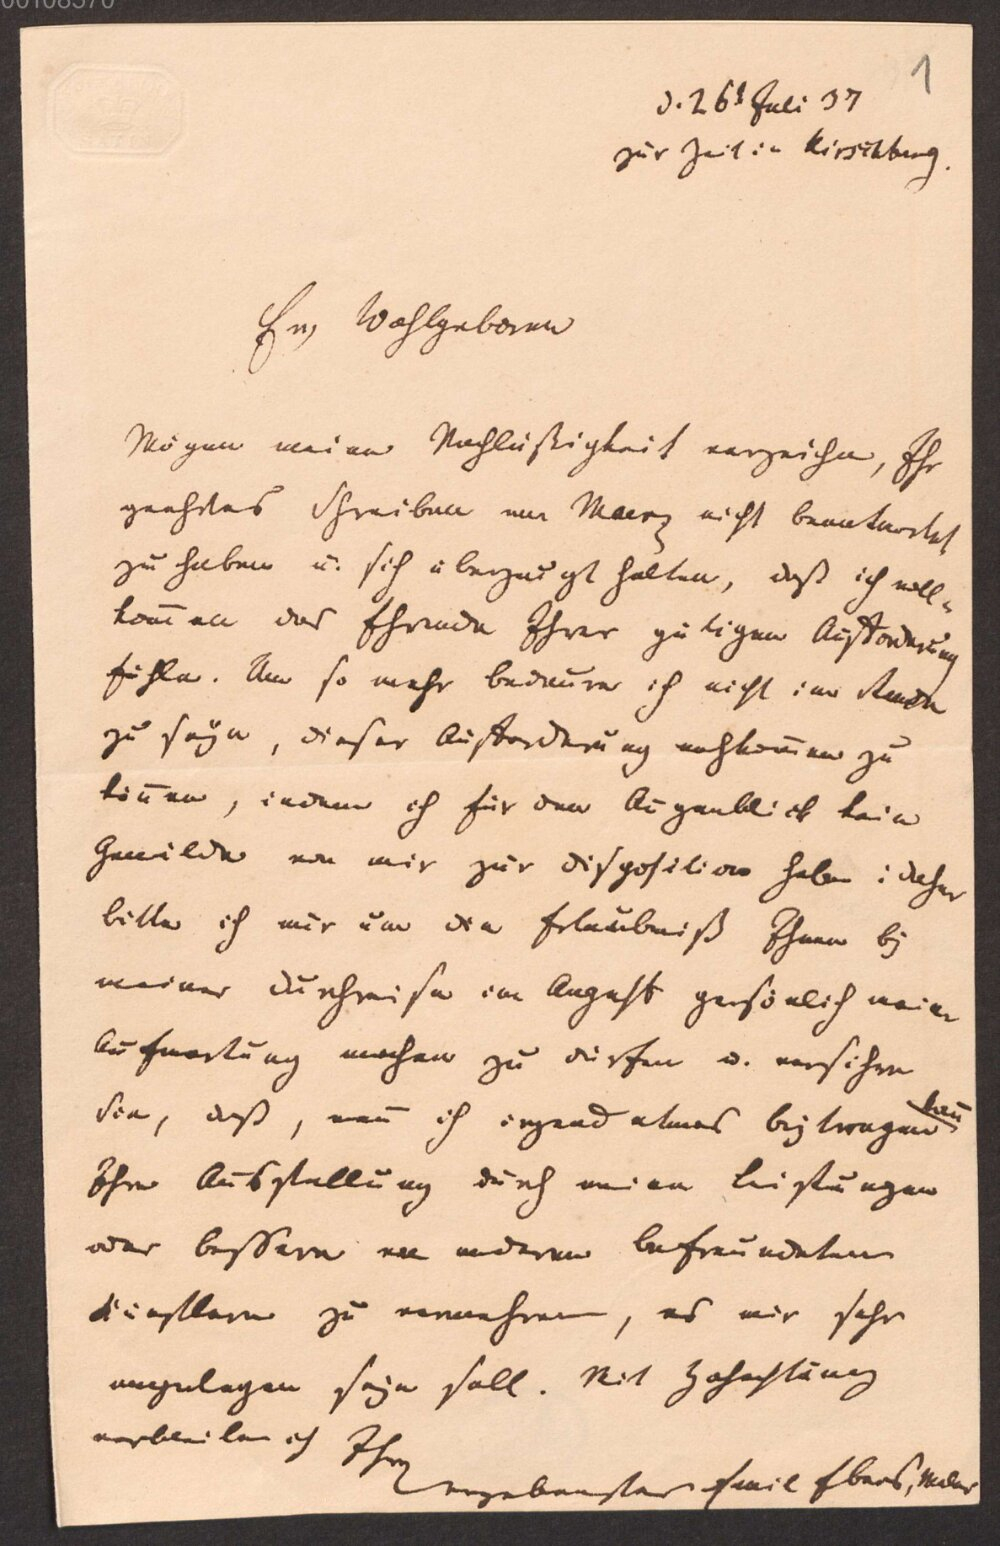 00108370
1
d. 26t Juli 37
zur Zeit in Hirschberg.
Ew Wohlgeboren
Mögen meine Nachläßigkeit verzeihn, Ihr
geehrtes Schreiben vom Maerz nicht beantwortet
zu haben u. sich überzeugt halten, daß ich voll-
kom̄en das Ehrende Ihrer gütigen Aufforderung
fühle. Um so mehr bedaure ich nicht im Stande
zu seÿn, dieser Aufforderung nachkom̄en zu
kön̄en, indem ich für den Augenblick kein
Gemälde von mir zur Disposition habe: daher
bitte ich mir um die Erlaubniß Ihnen bÿ
meiner Durchreise im August persönlich meine
Aufwartung machen zu dürfen u. versichre
Sie, daß, wen̄ ich irgend etwas bÿtragen kan̄
Ihre Ausstellung durch meine Leistungen
oder bessere von anderen befreundeten
Künstlern zu vermehren, es mir sehr
angelegen seÿn soll. Mit Hochachtung
verbleibe ich Ihr
ergebenster Emil Ebers, Maler